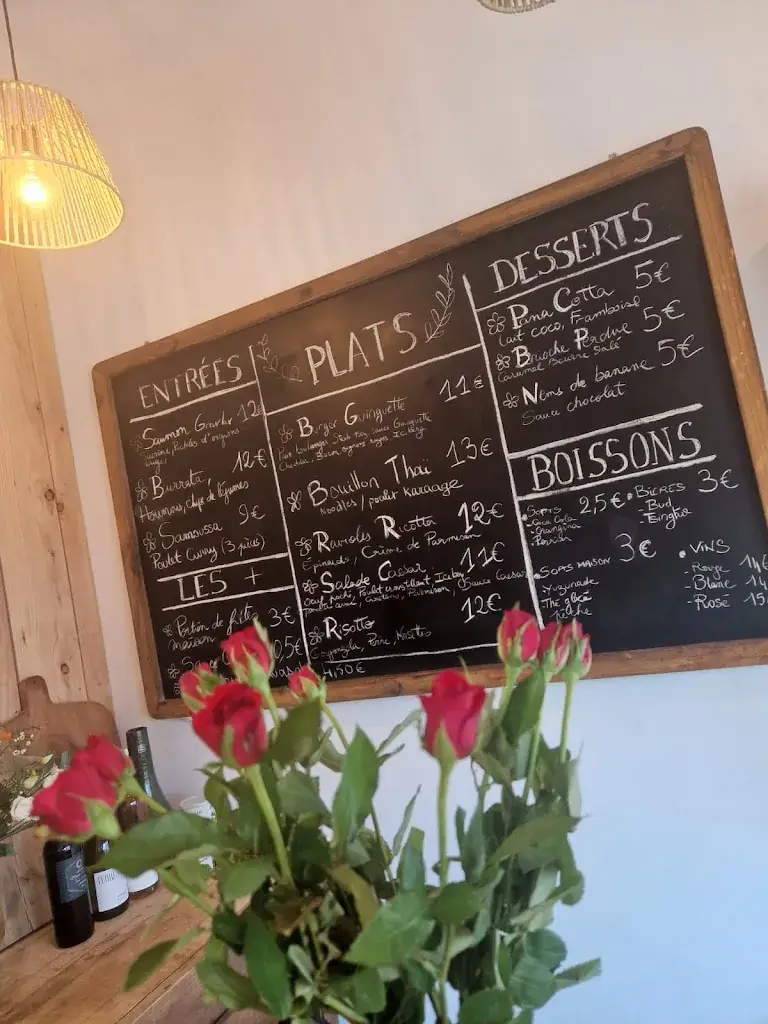 ENTRÉES
Saumon Gravlax 12€
Sucrine, Pickles d'oignons
rouges
Burrata 12€
Houmous, chips de légumes
Samoussa 9€
Poulet Curry (3 pièces)
LES +
Portion de frites 3€
maison
0,5€
PLATS
Burger Guinguette 11€
Pain boulanger, Steak, Sauce Guinguette
Cheddar, Bacon, oignons rouges, Iceberg
Bouillon Thaï 13€
Noodles / poulet karaage
Ravioles Ricotta 12€
Epinards, Crème de Parmesan
Salade Caesar 11€
Oeuf poché, Poulet croustillant, Iceberg
Parmesan, Sauce Caesar
Risotto 12€
Gorgonzola, Poire, Noisettes
DESSERTS
Pana Cotta 5€
Lait coco, Framboise
Brioche Perdue 5€
Caramel Beurre Salé
Nems de banane 5€
Sauce chocolat
BOISSONS
Softs 2,5€
- Coca Cola
- Orangina
- Perrier
Softs maison 3€
Thé glacé
pêche
Bières 3€
- Bud
- Tsingtao
Vins
- Rouge 14€
- Blanc 14
- Rosé 15